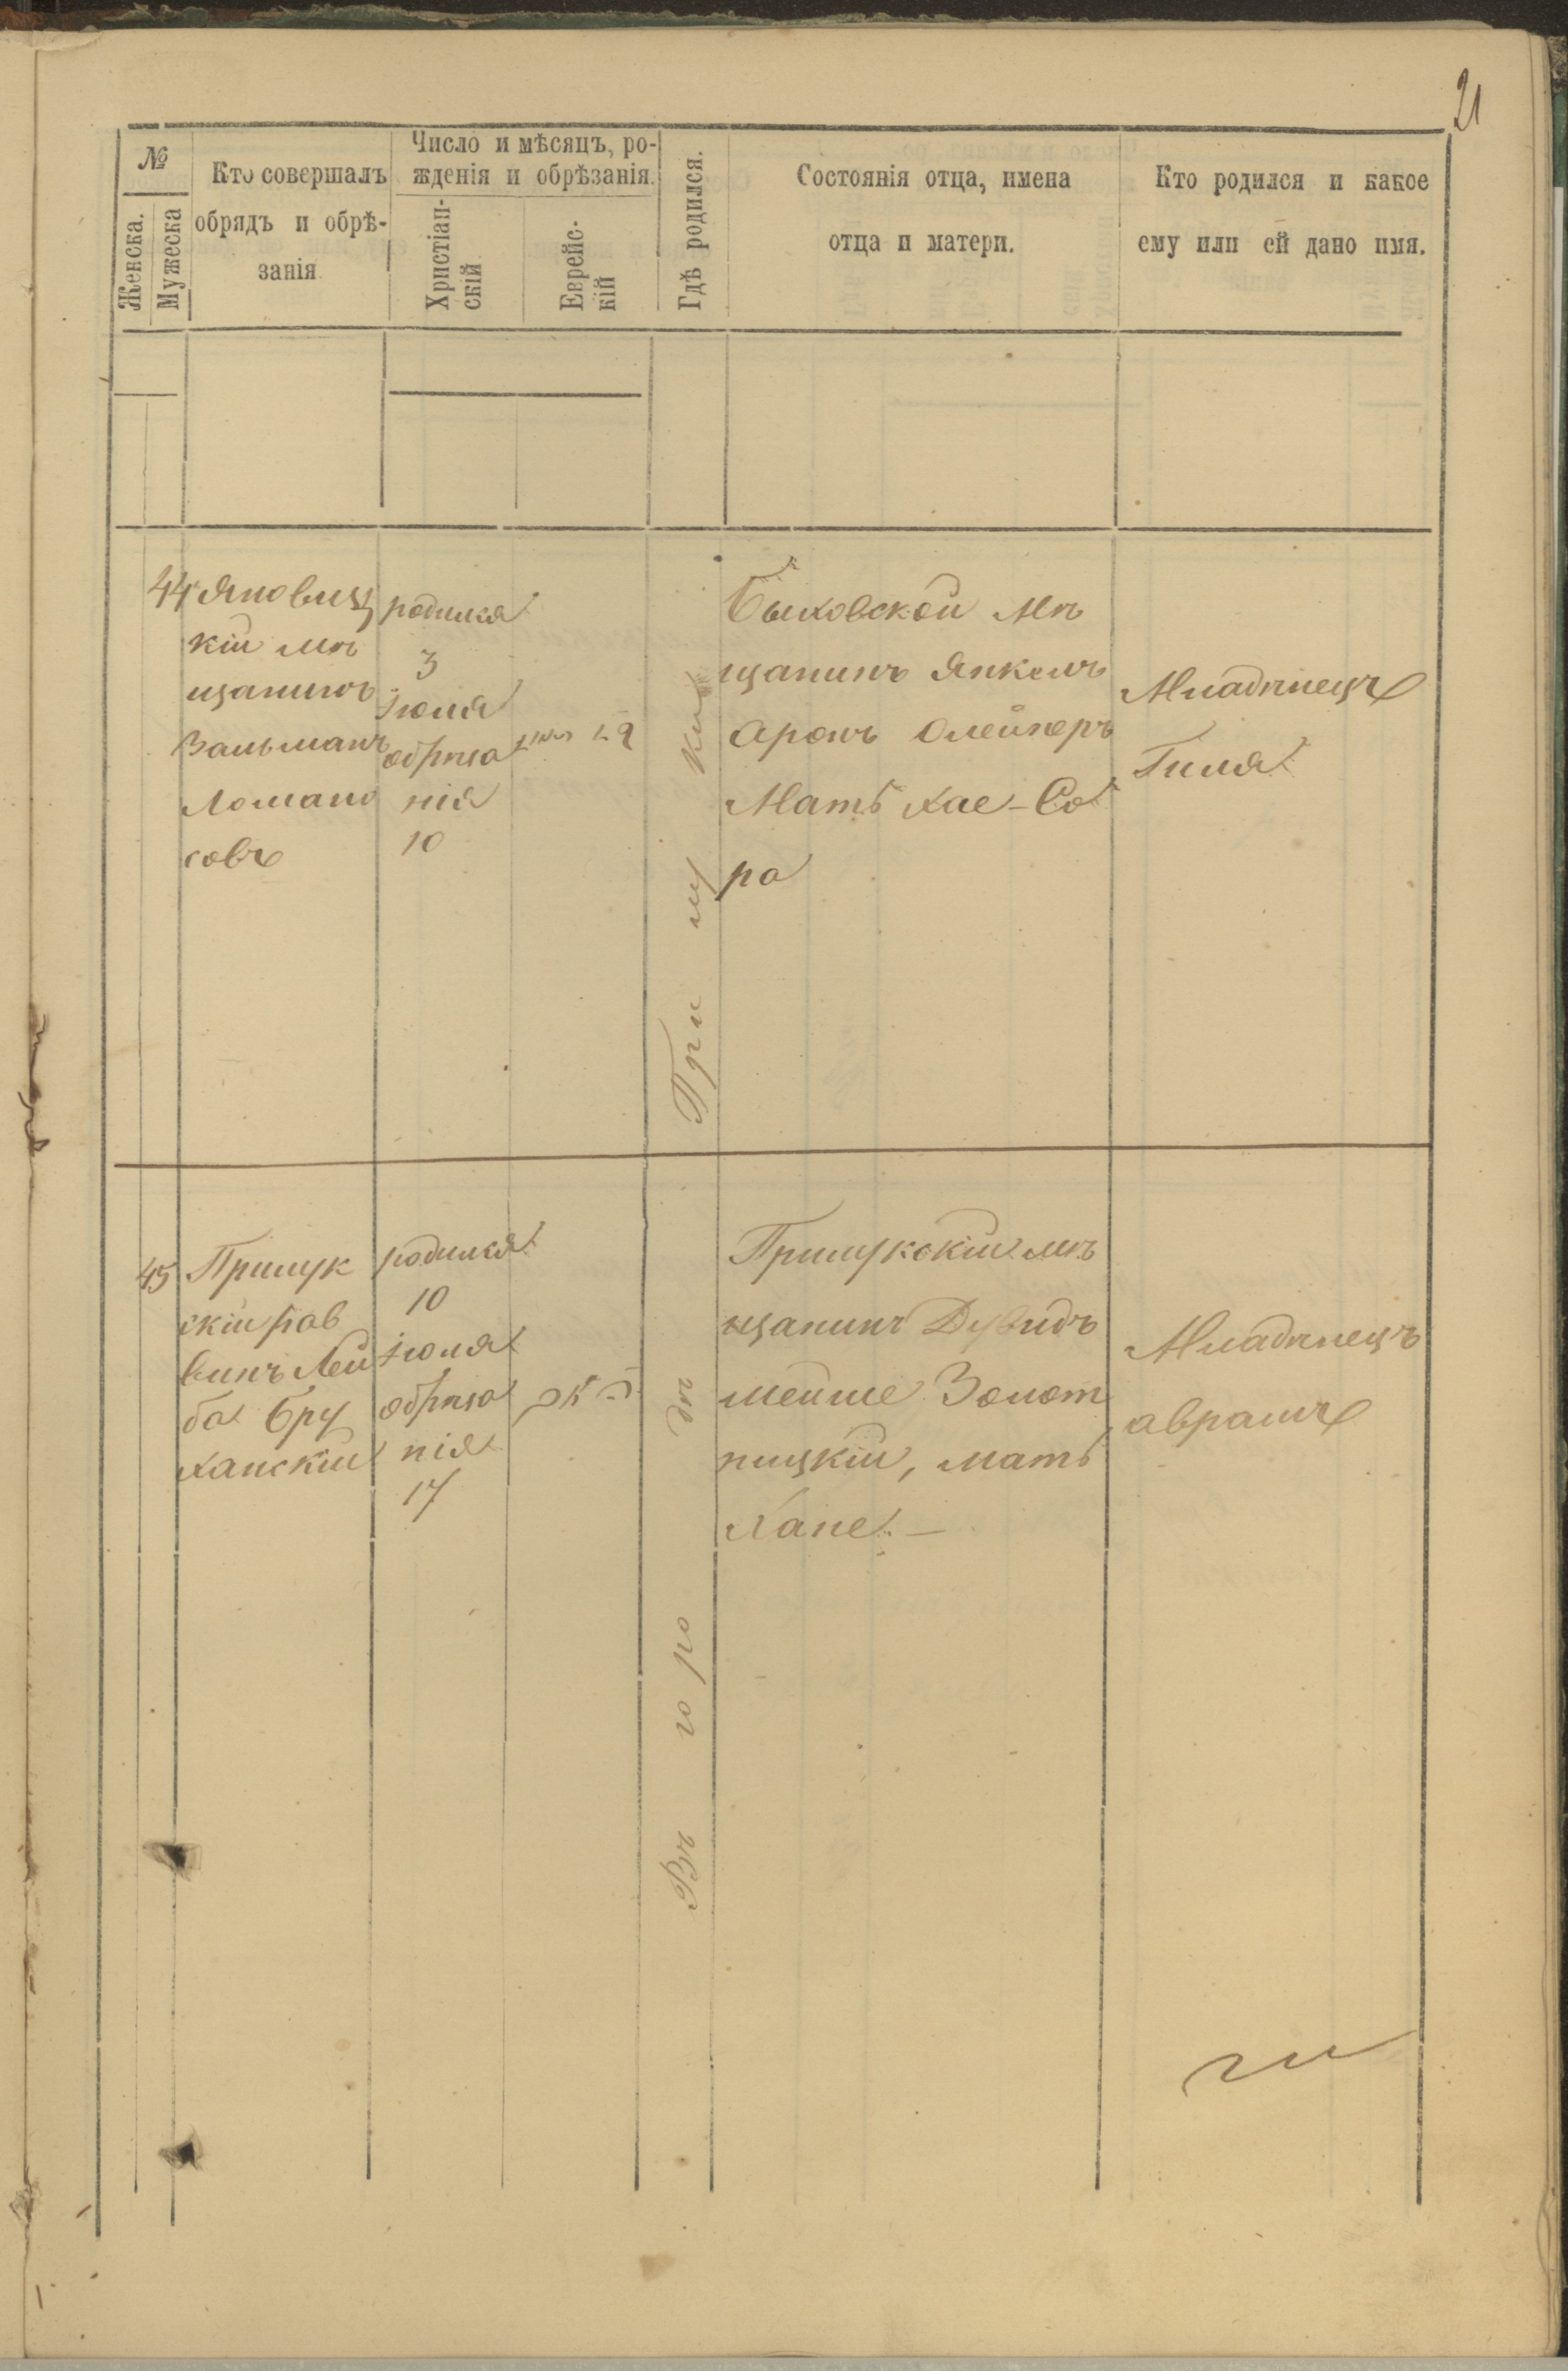 21
№
Женска.
Мужеска
Кто совершалъ
обрядъ и обрѣ-
занія
Число и мѣсяцъ, ро-
жденія и обрѣзанія.
Христіан-
скій
Еврейс-
кій
Гдѣ родился.
Состоянія отца, имена
отца и матери.
Кто родился и какое
ему или ей дано имя.
44
Яновиц
кій мѣ
щанинъ
Залманъ
Ломано
совъ
родился
3
Іюля
обрѣза
нія
10
Быховской мѣ
щанинъ Янкель
Аронъ Олейнеръ
Мать Хае-Со
ра
Младѣнецъ
Гиля
45
Прилук
скій рав
винъ Лей
ба Бру
ханскій
родился
10
Іюля
обрѣза
нія
17
Въ го ро дѣ При лу ки
Прилукскій мѣ
щанинъ Дувидъ
Мейше Золот
ницкій, мать
Хане. —
Младѣнецъ
аврамъ